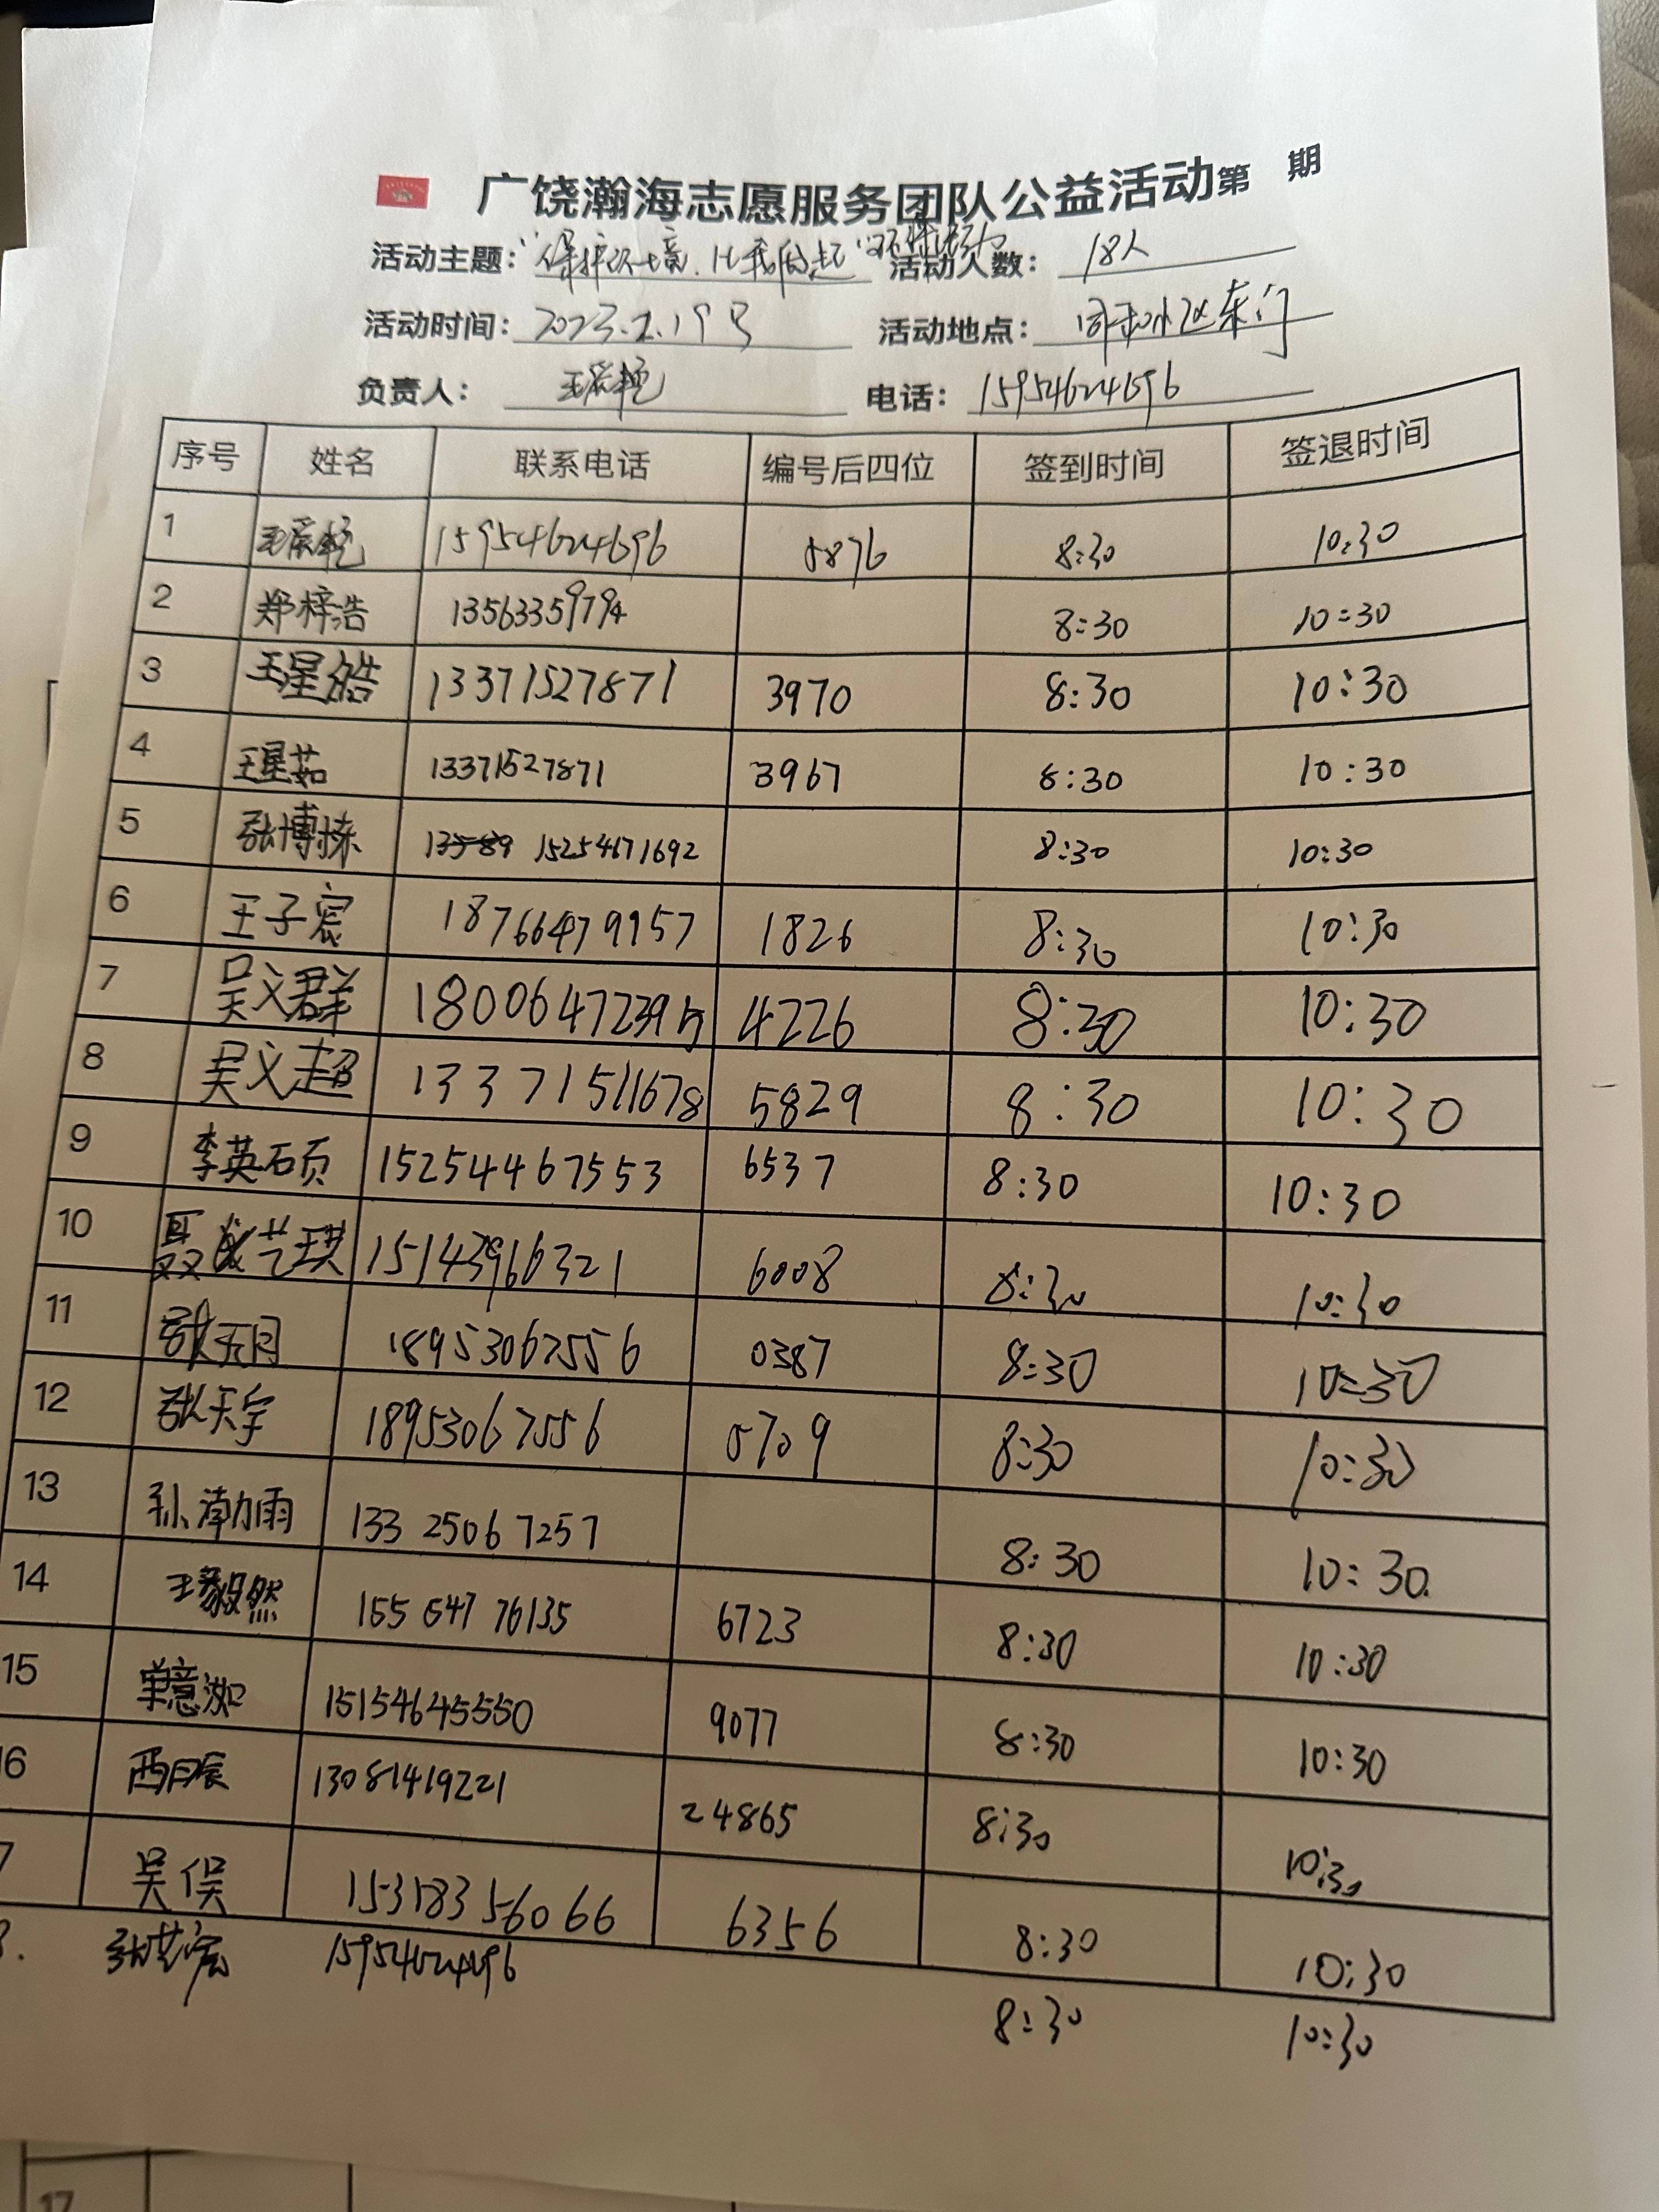 广饶瀚海志愿服务团队公益活动第 期
活动主题：“保护环境，从我做起”环保活动 活动人数：18人
活动时间：2023.2.19号 活动地点：同和小区东门
负责人： 电话：15954624696
序号 姓名 联系电话 编号后四位 签到时间 签退时间
1 15954624696 5876 8:30 10:30
2 郑梓浩 13563359794 8:30 10:30
3 王星皓 13371527871 3970 8:30 10:30
4 王星茹 13371527871 3967 8:30 10:30
5 张博栋 15254671692 8:30 10:30
6 王子宸 18766479957 1826 8:30 10:30
7 吴义群 18006472395 4226 8:30 10:30
8 吴义超 13371511678 5829 8:30 10:30
9 李英硕 15254467553 6537 8:30 10:30
10 聂成艺琪 15143966321 6008 8:30 10:30
11 18953067556 0387 8:30 10:30
12 张天宇 18953067556 5709 8:30 10:30
13 孙渤雨 13325067257 8:30 10:30
14 王毅然 15554776135 6723 8:30 10:30
15 单意洳 15154645550 9077 8:30 10:30
16 西月辰 13081419221 24865 8:30 10:30
7 吴俣 15318356066 6356 8:30 10:30
张艺宸 15954624696 8:30 10:30
17